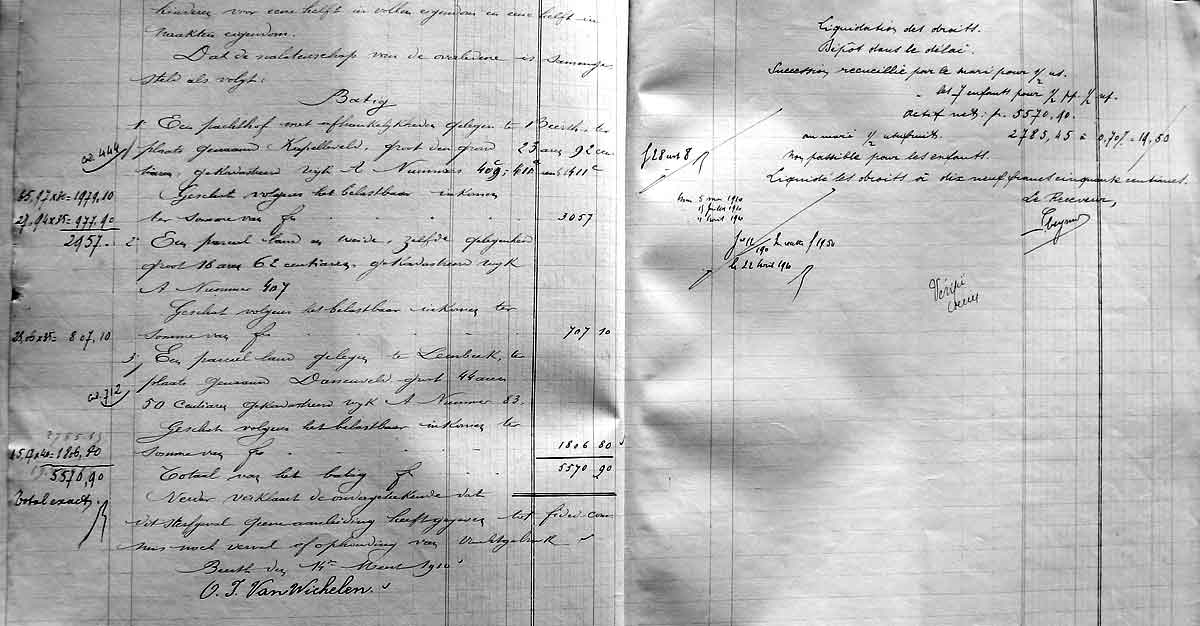 kinderen voor eene helft in vollen eigendom en eene helft in
naakten eigendom.
Dat de nalatenschap van de overledene is samenge-
steld als volgt:
Batig
1. Een pachthof met afhankelijkheden gelegen te Beerth, ter
plaats genaamd Kapelleveld, groot den grond 25 aren 92 cen-
tiaren, gekadastreerd wijk A Nummers 409, 410 en 411
Geschat volgens het belastbaar inkomen
ter somme van fr 3057
2. Een perceel land en weide, zelfde gelegenheid
groot 16 aren 62 centiaren, gekadastreerd wijk
A Nummer 407
Geschat volgens het belastbaar inkomen ter
somme van fr 707 10
3. Een perceel land gelegen te Lembeek, ter
plaats genaamd Dassenveld groot 44 aren
50 centiaren gekadastreerd wijk A Nummer 83.
Geschat volgens het belastbaar inkomen ter
somme van fr 1806 80
Totaal van het batig fr 5570 90
Verder verklaart de ondergeteekende dat
dit sterfgeval geene aanleiding heeft gegeven tot fidei-com-
mis noch verval of ophouding van vruchtgebruik
Beerth den 14 Meert 1910
O. J. Van Wichelen
art. 444
= 1979,10
977,90
2957.
= 807,10
art. 712
= 1806,80
5570,90
Total exact
Liquidation des droits.
Dépôt dans le délai.
Succession recueillie par le mari pour 1/2 us.
les 7 enfants pour 1/2 pp. 1/2 np.
Actif net: fr. 5570,90.
au mari 1/2 usufruit. 2785,45 à 0,70% = 19,50
Non passible pour les enfants.
Liquidé les droits à dix neuf francs cinquante centimes.
Le Receveur,
le 22 avril 1910
Vérifié